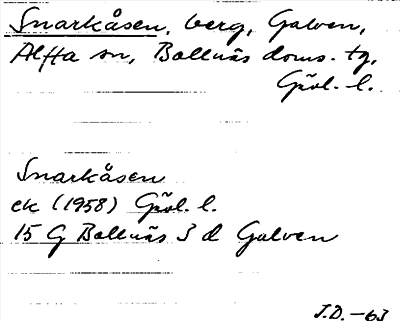 Snarkåsen, berg, Galven,
Alfta sn, Bollnäs doms. tg,
Gävl. l.
Snarkåsen
ek (1958) Gävl. l.
15 G Bollnäs 3 d Galven
J.D. -63